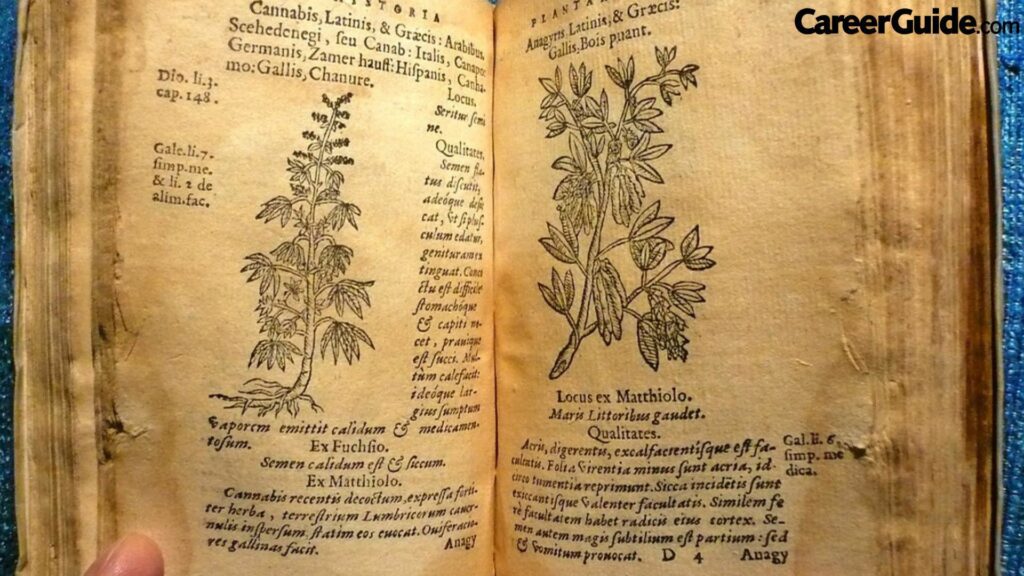 HISTORIA
Cannabis, Latinis, & Græcis: Arabibus,
Scehedenegi, seu Canab: Italis, Canapo:
Germanis, Zamer hauff: Hispanis, Canha-
mo: Gallis, Chanure.
Dio. li.3.
cap. 148.
Gale. li. 7.
simp. me.
& li. 2 de
alim. fac.
Locus.
Seritur semi
ne.
Qualitates.
Semen fla
tus discutit,
adeóque desic
cat, vt si plus-
culum edatur,
genituram ex
tinguat. Conco
ctu est difficile
stomachóque
& capiti no
cet, prauíque
est succi. Mul-
tum calefacit:
ideóque lar-
gius sumptum
vaporem emittit calidum & medicamen-
tosum.
Ex Fuchsio.
Semen calidum est & siccum.
Ex Matthiolo.
Cannabis recentis decoctum, expressa forti-
ter herba, terrestrium Lumbricorum cauer-
nulis inspersum, statim eos euocat. Ouiferacio-
res gallinas facit.
Anagy
PLANTAR
Anagyris, Latinis, & Græcis:
Gallis, Bois puant.
Locus ex Matthiolo.
Maris Littoribus gaudet.
Qualitates.
Acris, digerentis, excalfacientisque est fa-
cultatis. Folia virentia minus sunt acria, id-
circo tumentia reprimunt. Sicca incidētis sunt
exiccantisque valenter facultatis. Similem fe
rè facultatem habet radicis eius cortex. Se-
men autem magis subtilium est partium: sed
& vomitum prouocat. D 4 Anagy
Gal. li. 6.
simp. me
dica.
CareerGuide.com